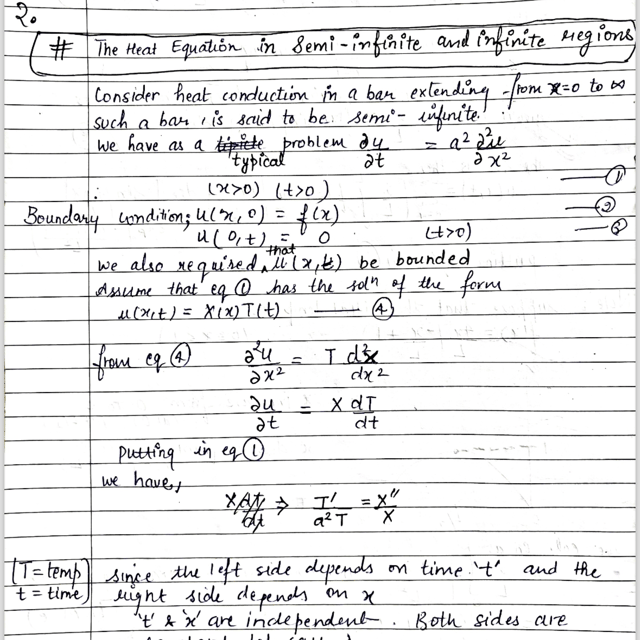 2.
# The Heat Equation in Semi-infinite and infinite regions
Consider heat conduction in a bar extending from x=0 to ∞
such a bar, is said to be semi-infinite.
we have as a typical problem ∂u/∂t = a² ∂²u/∂x²
(x>0) (t>0) — ①
Boundary condition; u(x, 0) = f(x) — ②
u(0, t) = 0 (t>0) — ③
we also required that u(x,t) be bounded
Assume that eq ① has the solⁿ of the form
u(x,t) = X(x)T(t) — ④
from eq ④ ∂²u/∂x² = T d²x/dx²
∂u/∂t = X dT/dt
putting in eq ①
we have,
⇒ T'/a²T = X''/X
[T = temp
t = time]
since the left side depends on time 't' and the
right side depends on x
't' & 'x' are independent. Both sides are